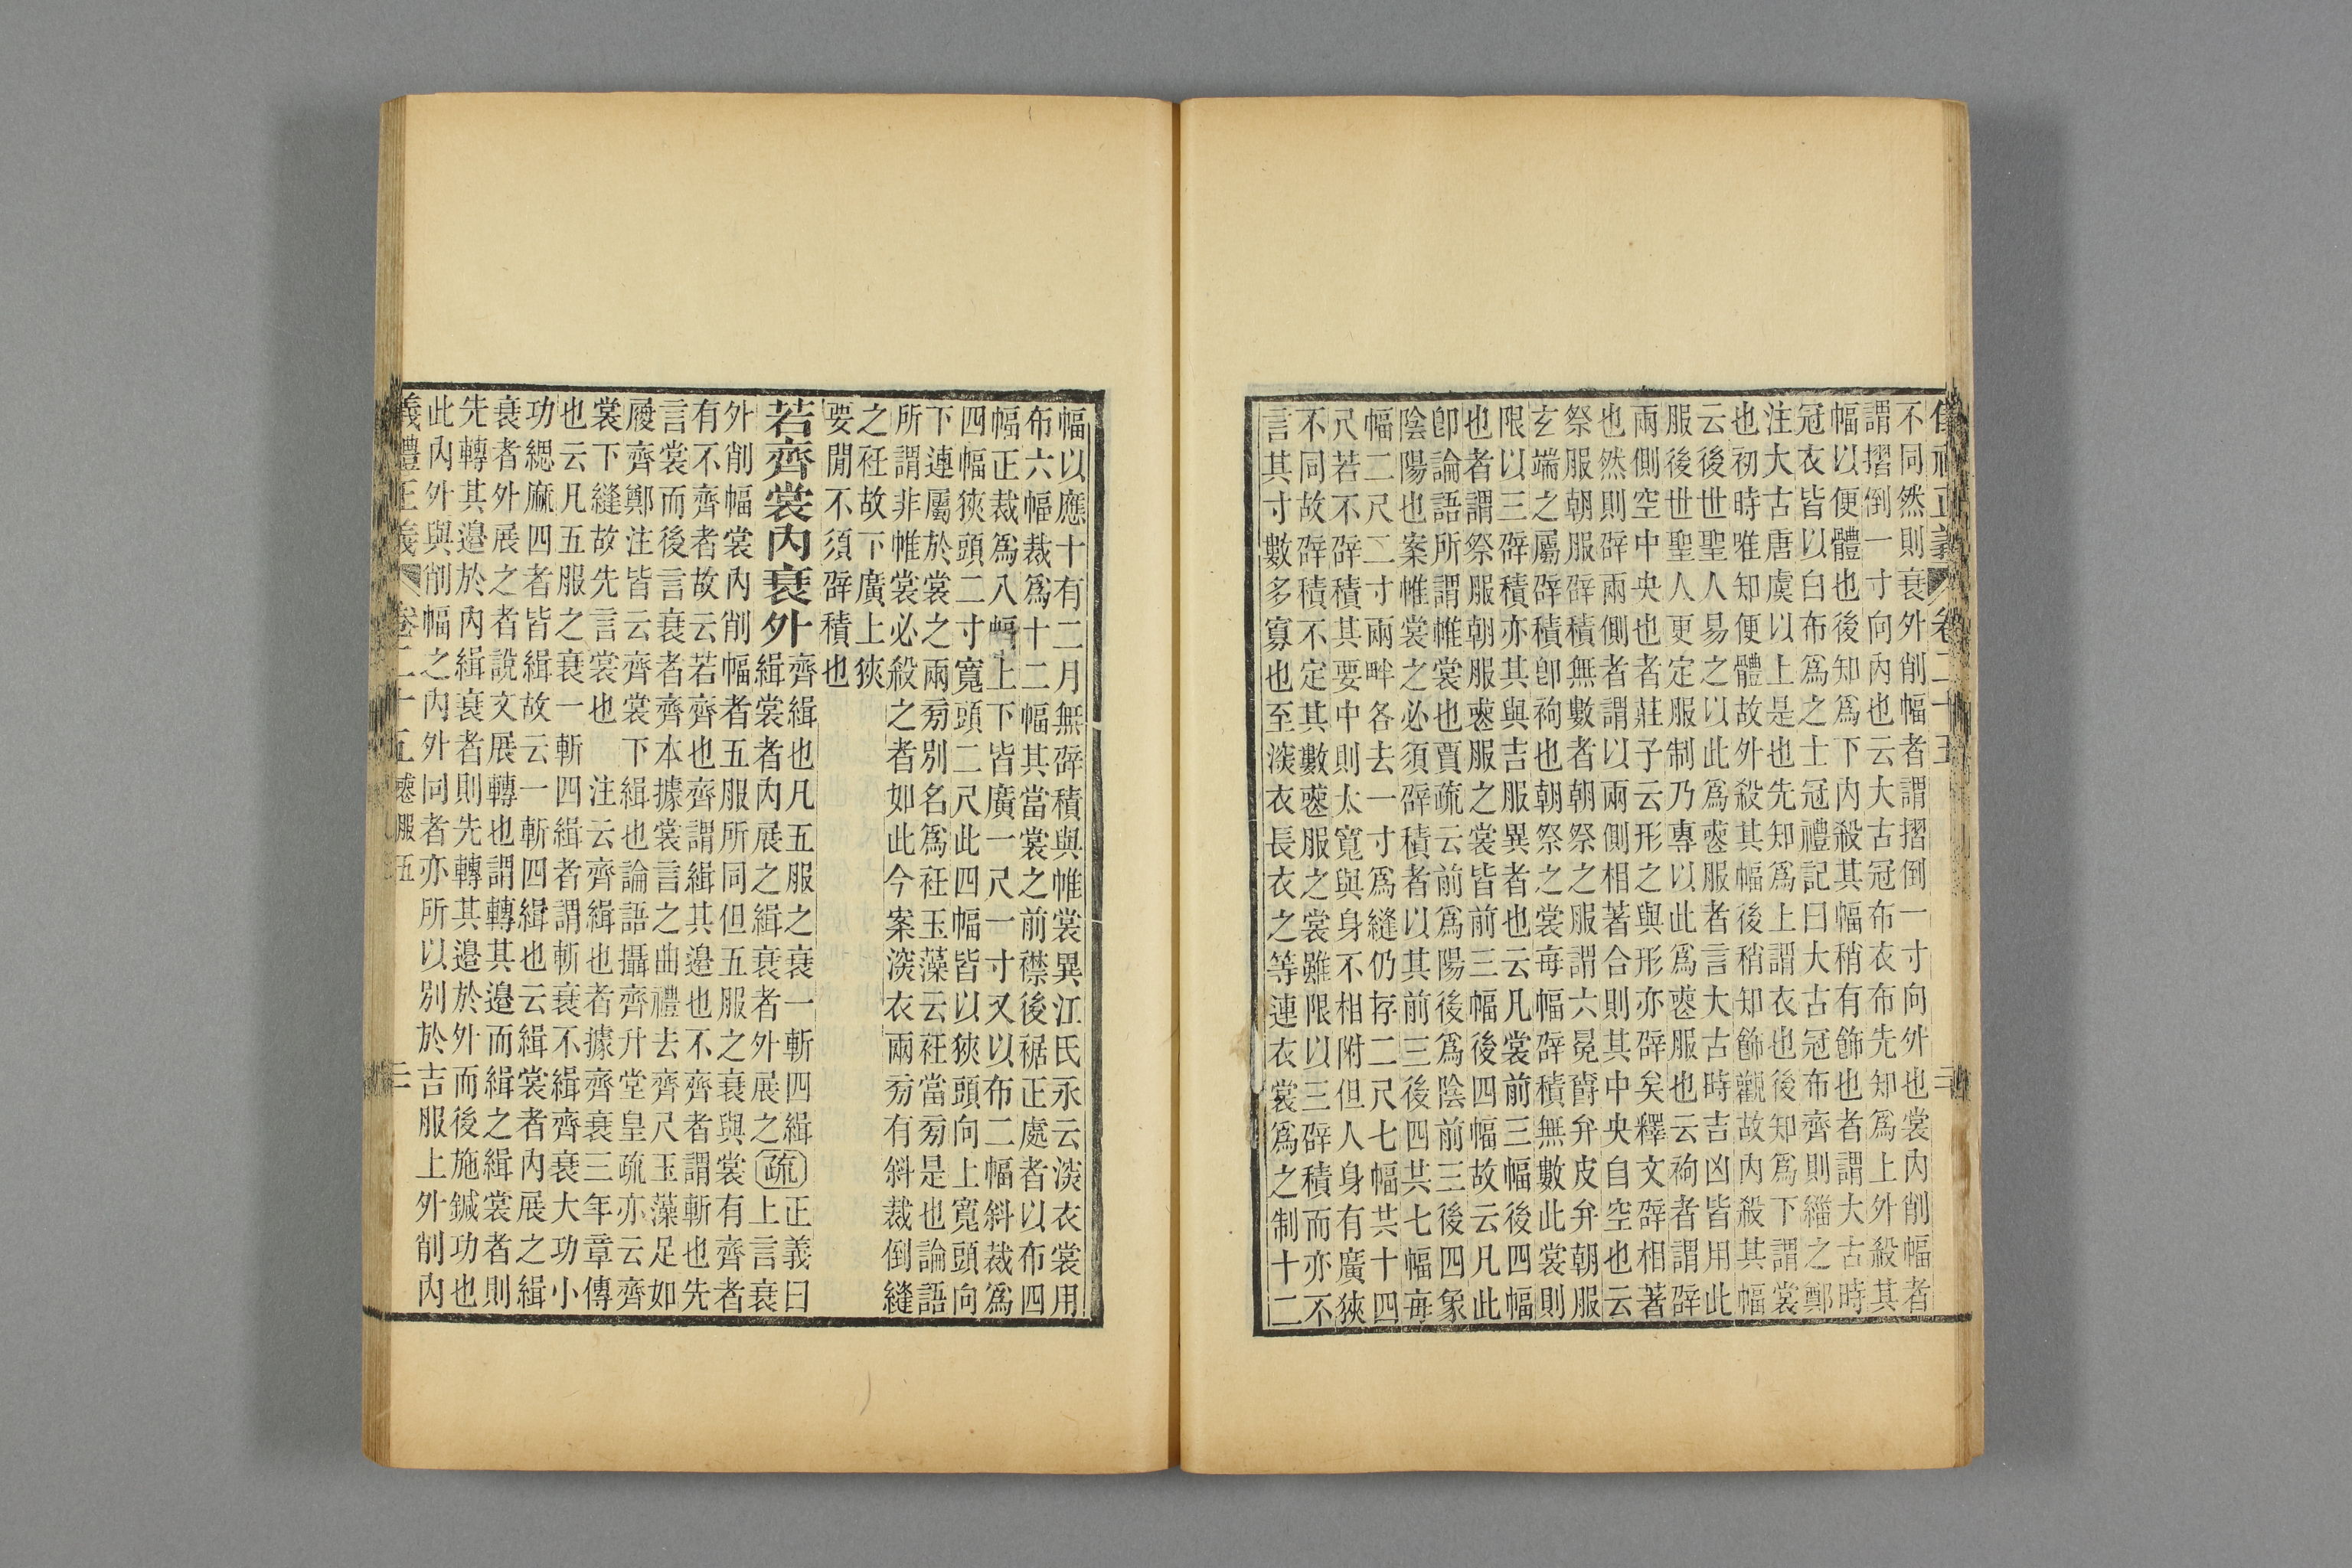 不同然則衰外削幅者謂摺倒一寸向外也裳內削幅者
謂摺倒一寸向內也云大古冠布衣布先知爲上外殺其
幅以便體也後知爲下內殺其幅稍有飾也者謂大古時
冠衣皆以白布爲之士冠禮記曰大古冠布齊則緇之鄭
注大古唐虞以上是也先知爲上謂衣也後知爲下謂裳
也初時唯知便體故外殺其幅後稍知飾觀故內殺其幅
云後世聖人易之以此爲䘮服者言大古時吉凶皆用此
服後世聖人更定服制乃專以此爲䘮服也云袧者謂辟
兩側空中央也者莊子云形之與形亦辟矣釋文辟相著
也然則辟兩側者謂以兩側相著合則其中央自空也云
祭服朝服辟積無數者朝祭之服謂六冕爵弁皮弁朝服
玄端之屬辟積卽袧也朝祭之裳每幅辟積無數此裳則
限以三辟積亦其與吉服異者也云凡裳前三幅後四幅
也者謂祭服朝服䘮服之裳皆前三幅後四幅故云凡此
卽論語所謂帷裳也賈疏云前爲陽後爲陰前三後四象
陰陽也案帷裳之必須辟積者以其前三後四共七幅每
幅二尺二寸兩畔各去一寸爲縫仍存二尺七幅共十四
尺若不辟積其要中則太寬與身不相附但人身有廣狹
不同故辟積不定其數䘮服之裳雖限以三辟積而亦不
言其寸數多寡也至深衣長衣之等連衣裳爲之制十二
幅以應十有二月無辟積與帷裳異江氏永云深衣裳用
布六幅裁爲十二幅其當裳之前襟後裾正處者以布四
幅正裁爲八幅上下皆廣一尺一寸又以布二幅斜裁爲
四幅狹頭二寸寬頭二尺此四幅皆以狹頭向上寬頭向
下連屬於裳之兩旁別名爲衽玉藻云衽當旁是也論語
所謂非帷裳必殺之者如此今案深衣兩旁有斜裁倒縫
之衽故下廣上狹
要閒不須辟積也
若齊裳內衰外
齊緝也凡五服之衰一斬四緝
緝裳者內展之緝衰者外展之
疏
正義曰
上言衰
外削幅裳內削幅者五服所同但五服之衰與裳有齊者
有不齊者故云若齊也齊謂緝其邉也不齊者謂斬也先
言裳而後言衰者齊本據裳言之曲禮去齊尺玉藻足如
履齊鄭注皆云齊裳下緝也論語攝齊升堂皇疏亦云齊
裳下縫故先言裳也 注云齊緝也者據齊衰三年章傳
也云凡五服之衰一斬四緝者謂斬衰不緝齊衰大功小
功緦麻四者皆緝故云一斬四緝也云緝裳者內展之緝
衰者外展之者說文展轉也謂轉其邉而緝之緝裳者則
先轉其邉於內緝衰者則先轉其邉於外而後施鍼功也
此內外與削幅之內外同者亦所以別於吉服上外削內